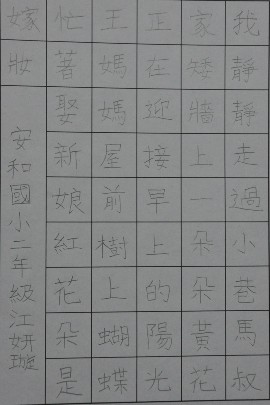 我靜靜走過小巷馬叔
家矮牆上一朵朵黃花
正在迎接早上的陽光
王媽媽屋前樹上蝴蝶
忙著娶新娘紅花朵是
嫁妝
安和國小二年級江妍璇